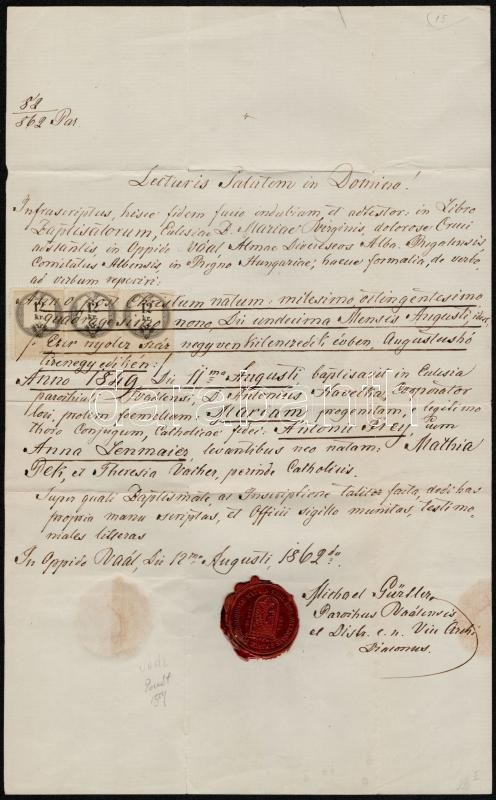 15
82
862 Par
Lecturis Salutem in Domino!
Infrascriptus, hisce fidem facio indubiam, et adtestor in Libro
Baptisatorum, Ecclesiae B. Mariae Virginis, dolorose Cruci
adstantis, in Oppido Vaál Almae Dioeceseos Alba Regalensis,
Comitatus Albensis, in Regno Hungariae; haece formalia, de verbo
ad verbum reperiri:
Anno a post Christum natum: milesimo octingentesimo
quadragesimo nono, Die undecima Mensis Augusti,
Ezer nyolcz száz negyven kilenczedik évben, Augustushó
tizenegyedikén:
12 kr 12 kr 12 kr
Anno 1849 Die 11ma Augusti baptisavit in Eclesia
parochia Vaálensi, D. Antonius Cooperator
loci, prolem foemineam: Mariam progenitam, legitimo
thoro Conjugum, Catholicae fidei: Antonii Frey, cum
Anna Lenmaier, levantibus neo natam: Mathia
Pek, et Theresia Vacher, perinde Catholicis.
Super quali Baptismate, ac Inscriptione taliter facta, dedi has
propria manu scriptas, et Officii sigillo munitas, testimo-
niales litteras
In Oppido Vaál, Die 12ma Augusti, 1862
Michael Gürtler
Parochus Vaálensis
et Distr. e. n. Vice Archi
Diaconus.
darabanth